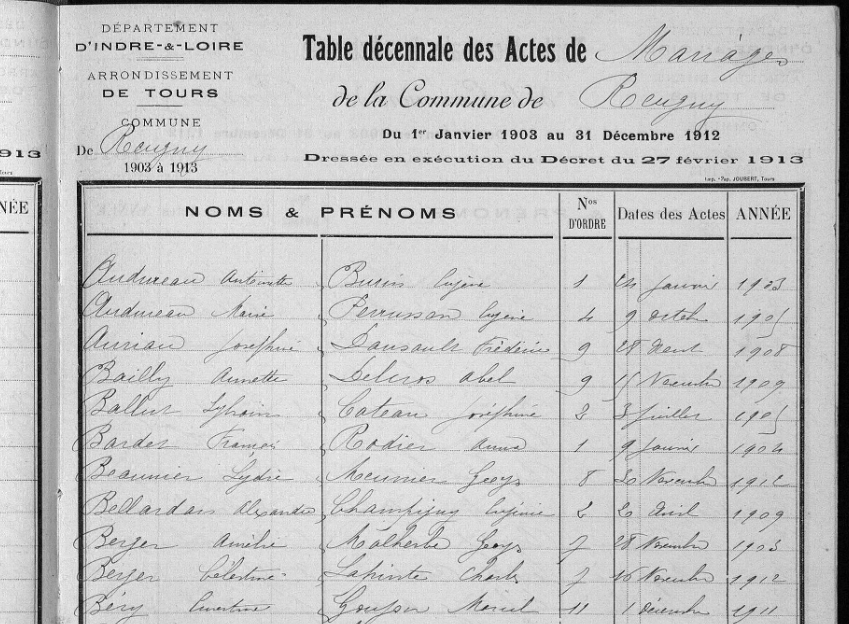 DÉPARTEMENT
D'INDRE-&-LOIRE
ARRONDISSEMENT
DE TOURS
COMMUNE
De Reugny
1903 à 1913
Table décennale des Actes de Mariages
de la Commune de Reugny
Du 1er Janvier 1903 au 31 Décembre 1912
Dressée en exécution du Décret du 27 février 1913
Imp.-Pap. JOUBERT, Tours
1913
NÉE
NOMS & PRÉNOMS Nos D'ORDRE Dates des Actes ANNÉE
Audureau Antoinette Burin Eugène 1 24 Janvier 1903
Audureau Marie Perrusson Eugène 4 9 octob 1905
Auriau Joséphine Dansault Frédéric 9 28 Aout 1908
Bailly Annette Delcros Abel 9 15 Novembre 1909
Ballut Sylvain Coteau Joséphine 3 Juillet 1905
Bardet François Rodier Anna 1 9 Janvier 1904
Beaumier Lydie Meunier Georges 8 30 Novembre 1912
Bellardais Alexandre Champigny Eugénie 2 20 Avril 1909
Berger Amélie Malherbe Georges 7 28 Novembre 1903
Berger Célestine Lapinte Charles 7 16 Novembre 1912
Béry Goujon Marcel 11 1 Décembre 1911